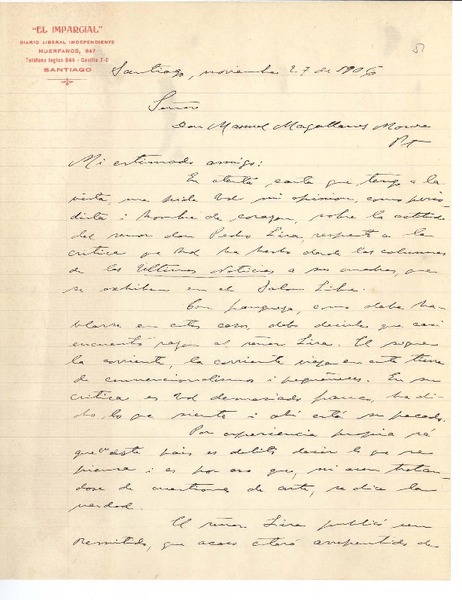 "EL IMPARCIAL"
DIARIO LIBERAL INDEPENDIENTE
HUERFANOS, 947
Teléfono Inglés 844 - Casilla 7-D
SANTIAGO
Santiago, noviembre 27 de 1906
Señor
Don Manuel Magallanes Moure
Pte
Mi estimado amigo:
En atenta carta que tengo a la
vista, me pide Ud mi opinion, como perio-
dista i hombre de corazon, sobre la actitud
del señor don Pedro Lira, respecto a la
critica que Ud ha hecho desde las columnas
de las Ultimas Noticias a sus cuadros, que
se exhiben en el Salon Libre.
Con franqueza, como debe ha-
blarse en estos casos, debo decirle que casi
encuentro razon al señor Lira. El sigue
la corriente, la corriente vieja en esta tierra
de convencionalismos i pequeñeces. En su
critica es Ud demasiado franco, ha di-
cho lo que siente i ahi está su pecado.
Por experiencia propia sé
que en este pais es delito decir lo que se
piensa i es por eso que, ni aun tratan-
dose de cuestiones de arte, se dice la
verdad.
El señor Lira publicó un
Remitido, que acaso estará arrepentido de